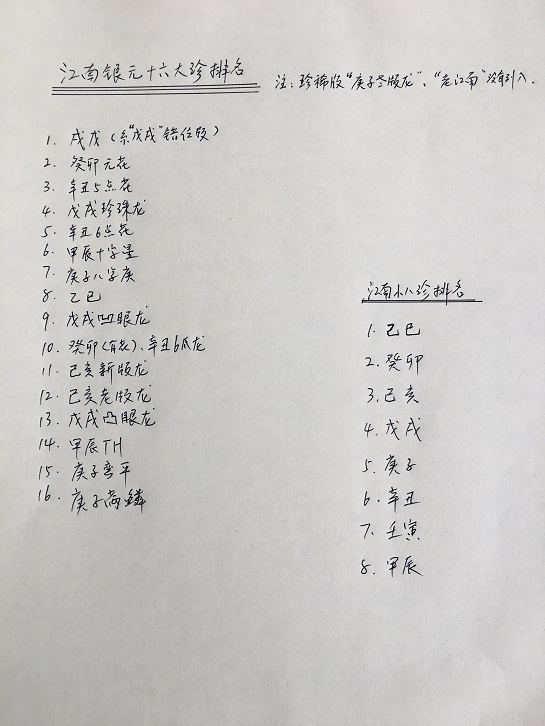 江南银元十六大珍排名
注：珍稀版“庚子冬版龙”、“老江南”没有列入.
1. 戌戊（系“戊戌”错位版）
2. 癸卯元花
3. 辛丑5点花
4. 戊戌珍珠龙
5. 辛丑6点花
6. 甲辰十字星
7. 庚子八字庚
8. 乙巳
9. 戊戌凹眼龙
10. 癸卯（有花）、辛丑6爪龙
11. 己亥新版龙
12. 己亥老版龙
13. 戊戌凸眼龙
14. 甲辰TH
15. 庚子弯平
16. 庚子满鳞
江南小八珍排名
1. 乙巳
2. 癸卯
3. 己亥
4. 戊戌
5. 庚子
6. 辛丑
7. 壬寅
8. 甲辰